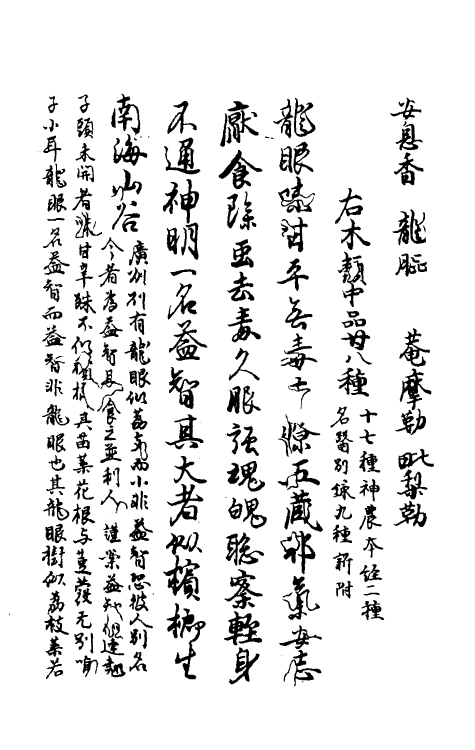 安息香 龍脳 菴摩勒 毗梨勒
右木類中品廿八種 十七種神農本經二種
名醫別錄九種新附
龍眼味甘平无毒主療五藏耶氣安志
厭食除蟲去毒久服強魂魄聡察輕身
不通神明一名益智其大者似檳榔生
南海山谷 廣州別有龍眼似荔支而小非益智恐彼人別名
今者為益智且食之並利人 謹案益智似連翹
子頭未開者味甘辛殊不似檳榔其苗葉花根与豆蔻无別唯
子小耳龍眼一名益智而益智非龍眼也其龍眼樹似荔枝葉若